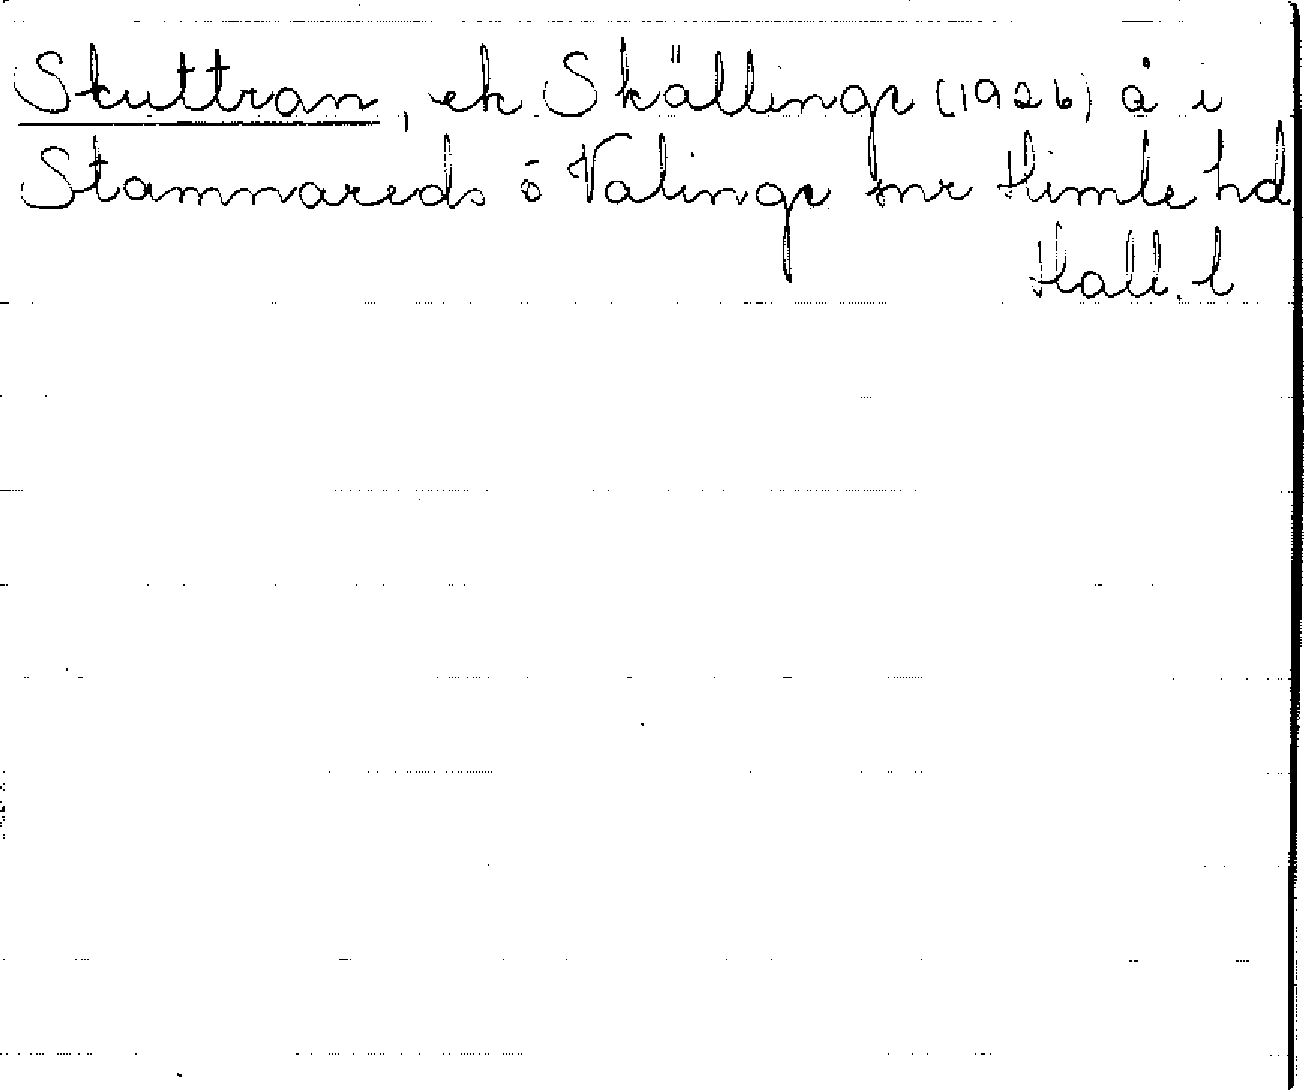 Skuttran, ek Skällinge (1926) å i
Stamnareds ö Valinge snr Himle hd
Hall. l